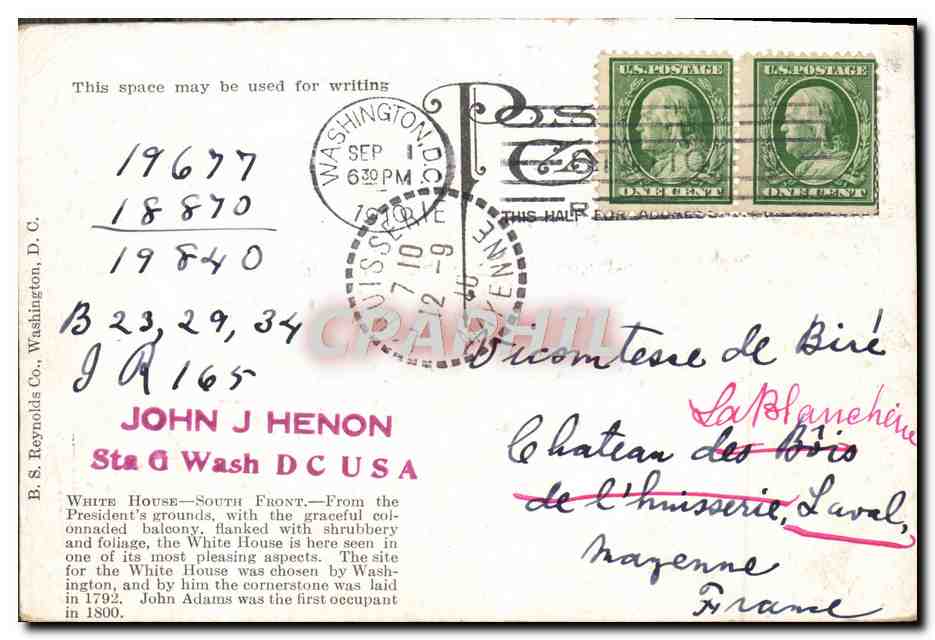 This space may be used for writing
U.S. POSTAGE
ONE CENT
U.S. POSTAGE
ONE CENT
WASHINGTON, D.C.
SEP 1
6 30 PM
1910
THIS HALF FOR ADDRESS
7 10
12 -9
10
19677
18870
19840
B 23, 29, 34
J R 165
JOHN J HENON
Sta G Wash D C U S A
WHITE HOUSE—SOUTH FRONT.—From the
President's grounds, with the graceful col-
onnaded balcony, flanked with shrubbery
and foliage, the White House is here seen in
one of its most pleasing aspects. The site
for the White House was chosen by Wash-
ington, and by him the cornerstone was laid
in 1792. John Adams was the first occupant
in 1800.
B. S. Reynolds Co., Washington, D. C.
CPAPHIL
Vicomtesse de Biré
La Blanchérie
Chateau des Bôis
de l'huisserie, Laval,
Mayenne
France